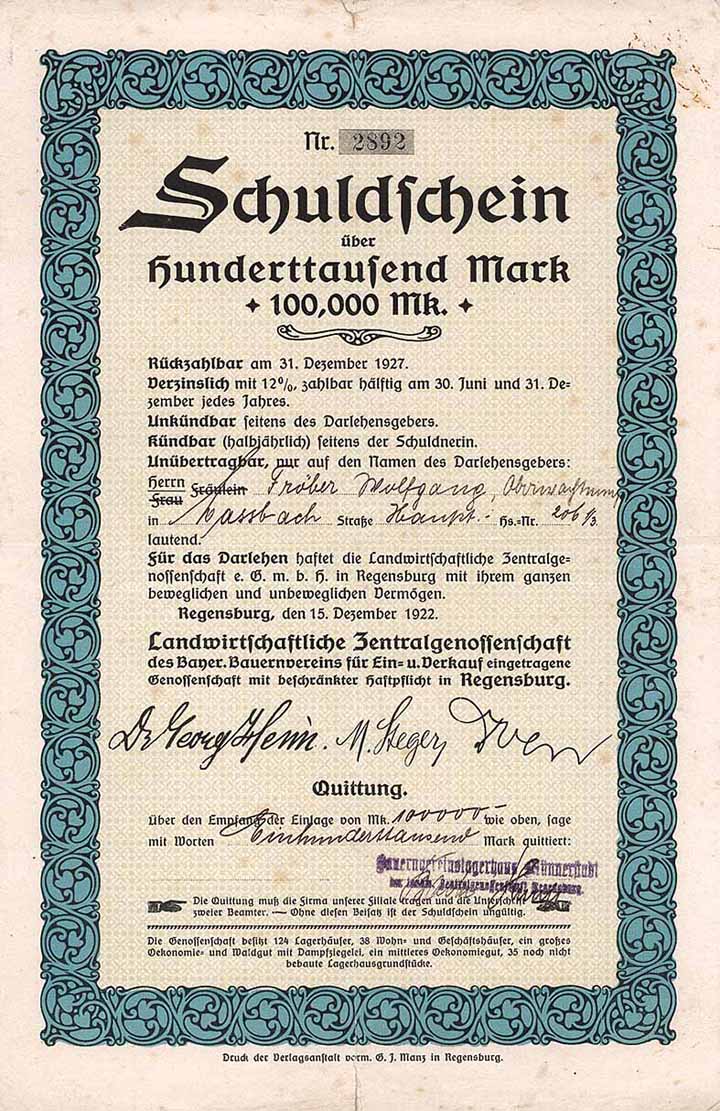 Nr. 2892
Schuldschein
über
Hunderttausend Mark
100,000 Mk.
Rückzahlbar am 31. Dezember 1927.
Verzinslich mit 12%, zahlbar hälftig am 30. Juni und 31. De-
zember jedes Jahres.
Unkündbar seitens des Darlehensgebers.
Kündbar (halbjährlich) seitens der Schuldnerin.
Unübertragbar, nur auf den Namen des Darlehensgebers:
Herrn
Frau Fräulein Fröber Wolfgang, Oberwachtm
in Massbach Straße Haupt.- Hs.-Nr. 206 1/3.
lautend.
Für das Darlehen haftet die Landwirtschaftliche Zentralge-
nossenschaft e. G. m. b. H. in Regensburg mit ihrem ganzen
beweglichen und unbeweglichen Vermögen.
Regensburg, den 15. Dezember 1922.
Landwirtschaftliche Zentralgenossenschaft
des Bayer. Bauernvereins für Ein- u. Verkauf eingetragene
Genossenschaft mit beschränkter Haftpflicht in Regensburg.
Dr Georg Heim. M. Steger
Quittung.
Über den Empfang der Einlage von Mk. 100000- wie oben, sage
mit Worten Einhunderttausend Mark quittiert:
Bauernvereinslagerhaus Münnerstadt
der landw. Zentralgenossenschaft Regensburg.
Die Quittung muß die Firma unserer Filiale tragen und die Unterschrift
zweier Beamter. — Ohne diesen Beisatz ist der Schuldschein ungültig.
Die Genossenschaft besitzt 124 Lagerhäuser, 38 Wohn- und Geschäftshäuser, ein großes
Oekonomie- und Waldgut mit Dampfziegelei, ein mittleres Oekonomiegut, 35 noch nicht
bebaute Lagerhausgrundstücke.
Druck der Verlagsanstalt vorm. G. J. Manz in Regensburg.